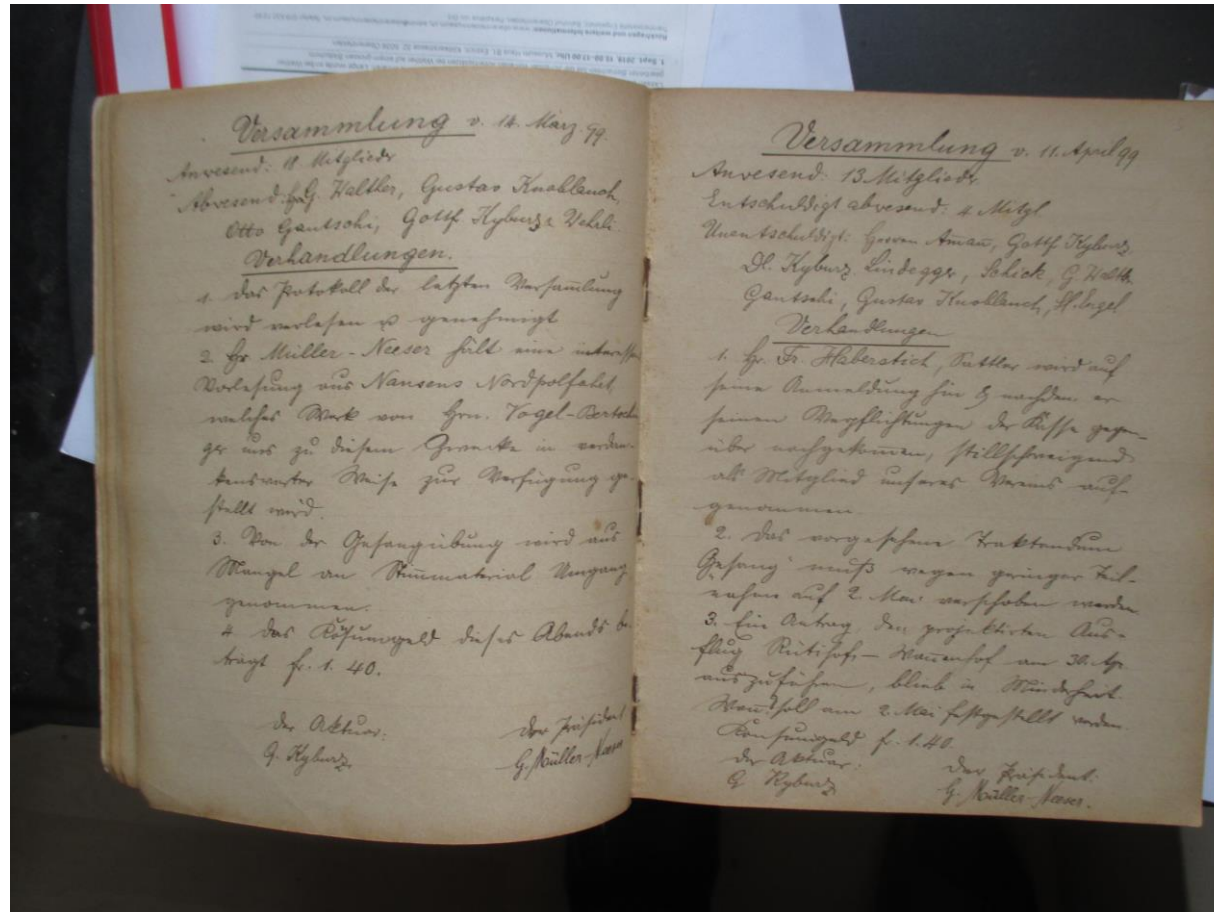 Versammlung v. 14. März 99.
Anwesend: 18 Mitglieder
Abwesend: G. Haltler, Gustav Knoblauch,
Otto Gautschi, Gottf. Kyburz, Wehrli.
Verhandlungen.
1. Das Protokoll der letzten Versam̅lung
wird verlesen u. genehmigt
2. Hr Müller-Neeser hält eine interess.
Vorlesung aus Nansens Nordpolfahrt,
welches Werk von Hrn. Vogel-Bertschin
ger uns zu diesem Zwecke in verdan-
kenswerter Weise zur Verfügung ge-
stellt wird.
3. Von der Gesangübung wird aus
Mangel an Stim̅material Umgang
genommen.
4. Das Kosumgeld dieses Abends be
trägt fr. 1. 40.
Der Aktuar:
G. Kyburz.
Der Präsident
G. Müller-Neeser
Versammlung v. 11. April 99
Anwesend: 13 Mitglieder
Entschuldigt abwesend: 4 Mitgl
Unentschuldigt: Herren Aman̅, Gottf Kyburz
Kyburz Lindegger, Schick, G.
Gautschi, Gustav Knoblauch, H. Engel
Verhandlungen
1. Hr. Fr. Haberstich, Sattler wird auf
seine Anmeldung hin & nachdem er
seinen Verpflichtungen der Kasse gegen-
über nachgekom̅en, stillschweigend
als Mitglied unseres Vereins auf-
genommen.
2. Das vorgesehene Traktandum
Gesang muß wegen geringer Teil-
nahme auf 2. Mai verschoben werden.
3. Ein Antrag, den projektirten Aus-
flug Rütihof - Wan̅enhof am 30. Apr
auszuführen, blieb in Minderheit.
soll am 2. Mai festgestellt werden.
Konsumgeld fr. 1.40
Der Aktuar:
G Kyburz
Der Präsident:
G. Müller-Neeser.